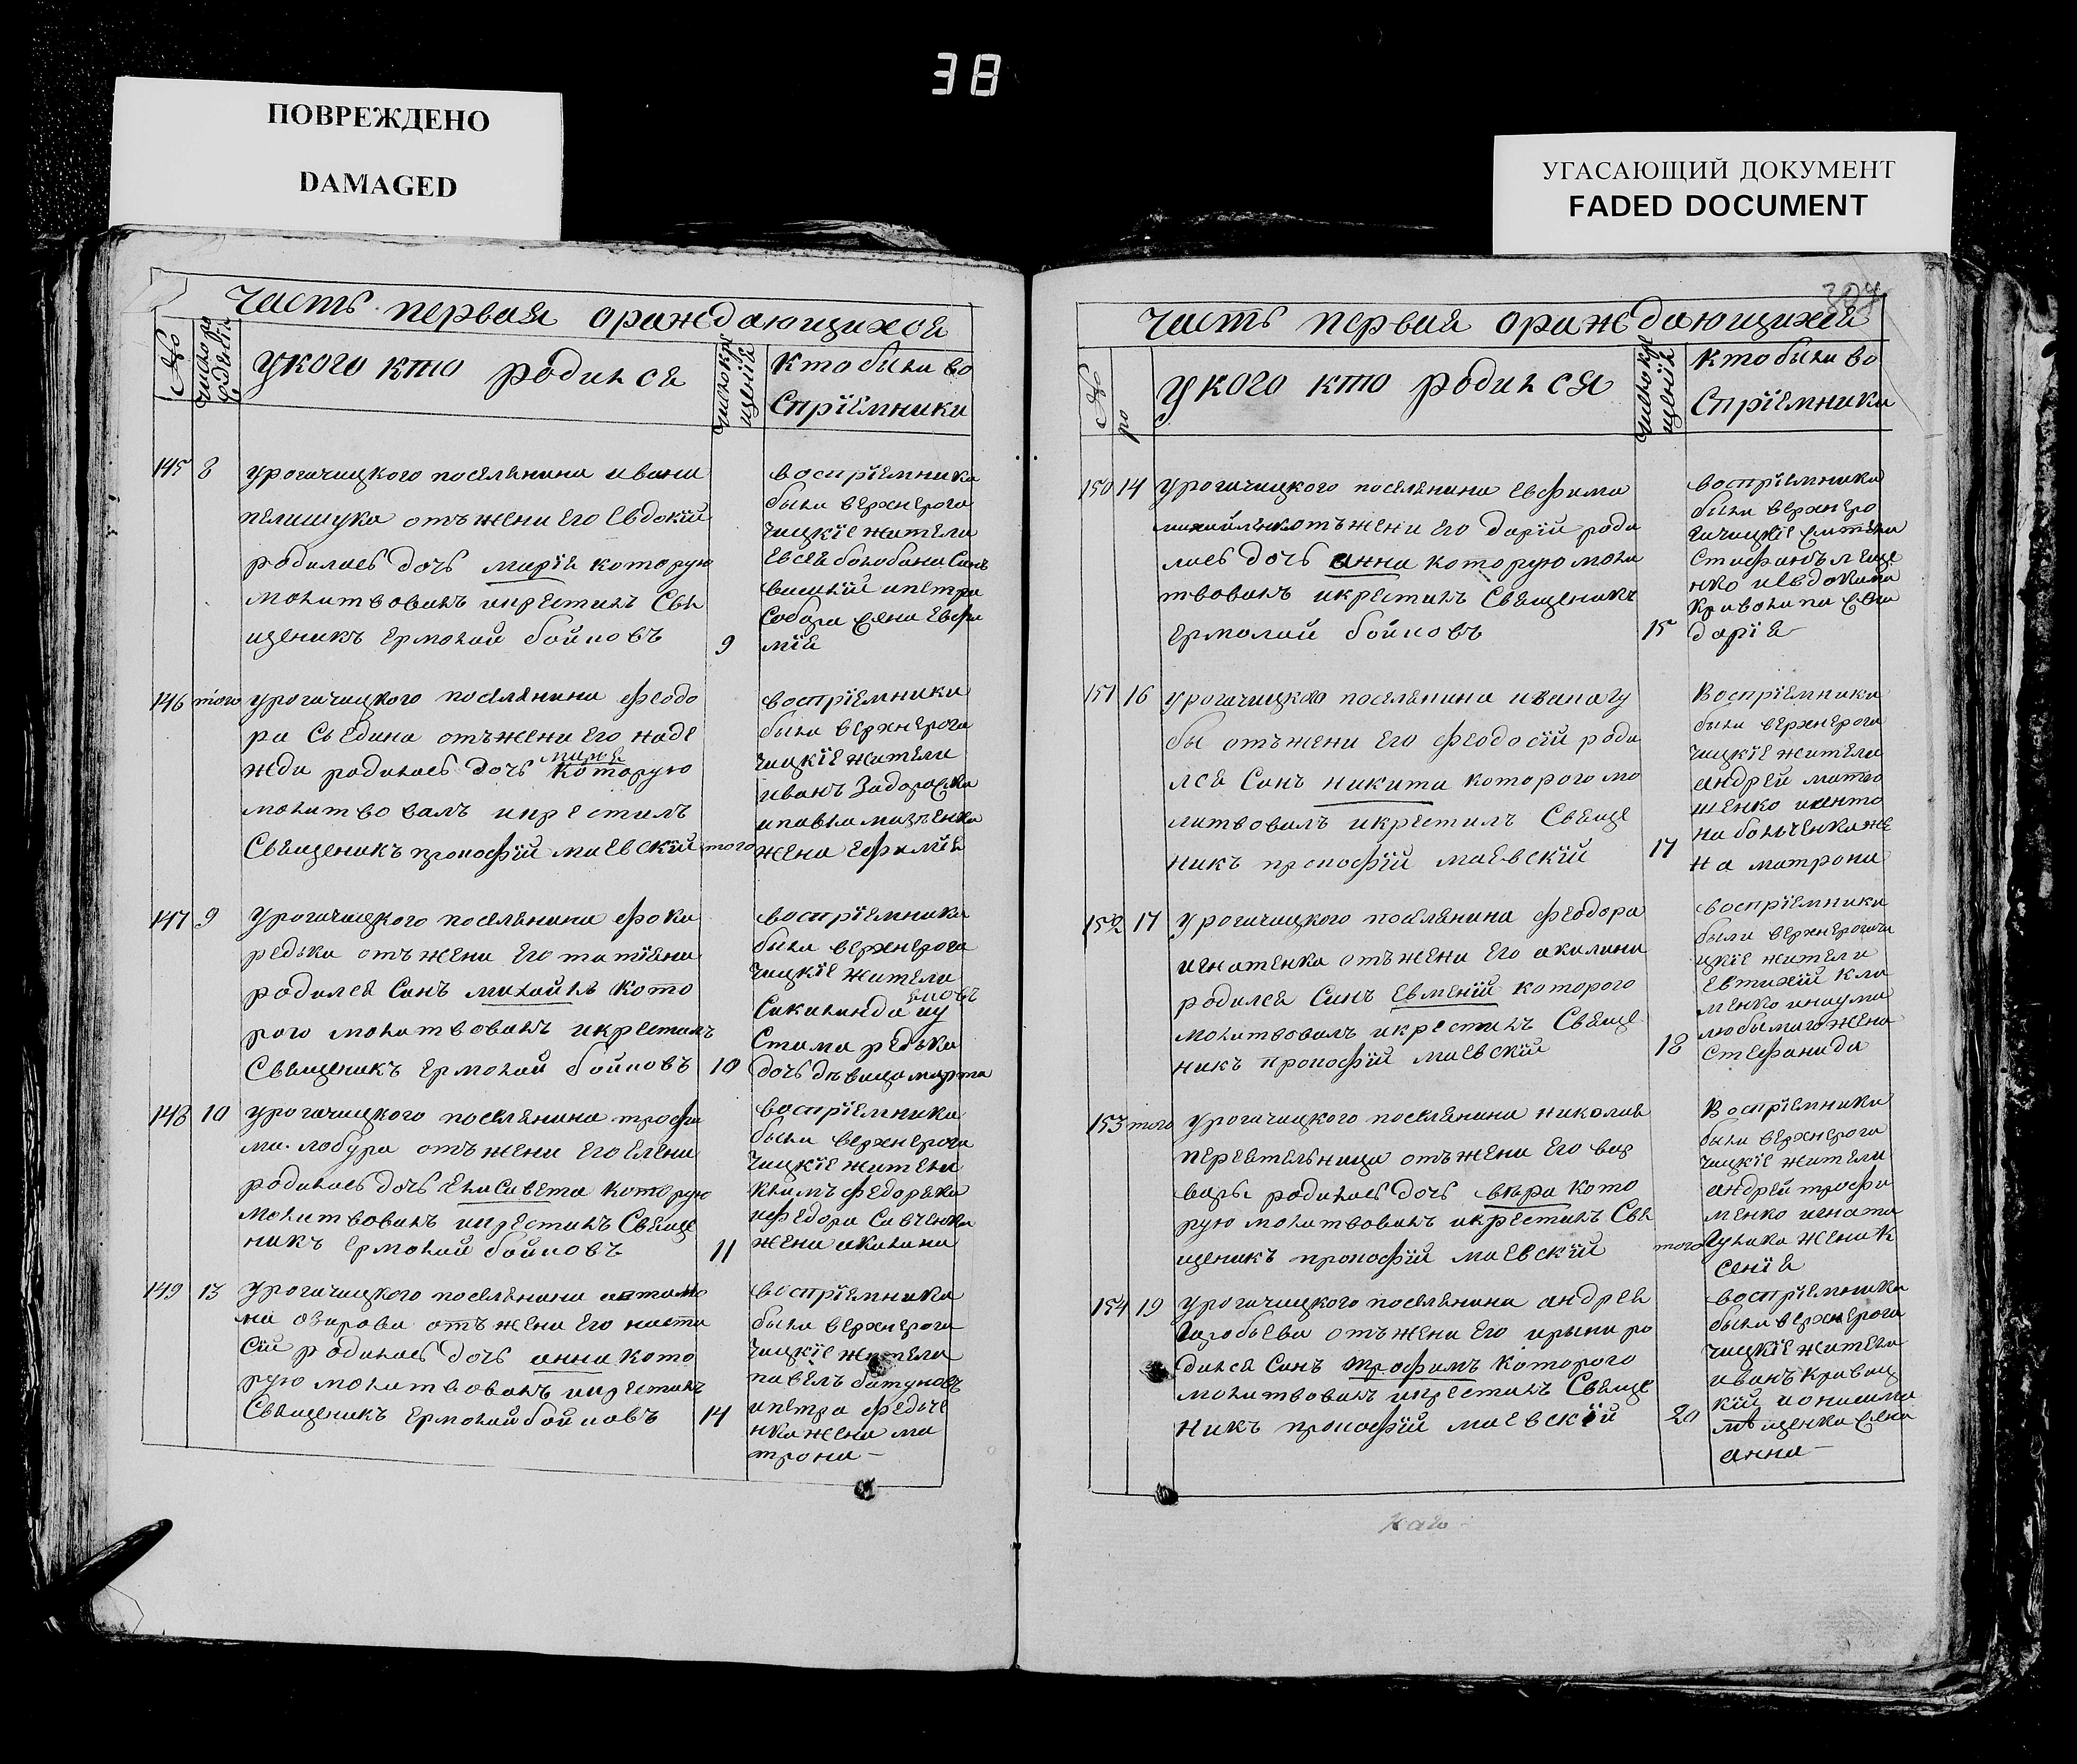 38
ПОВРЕЖДЕНО
DAMAGED
УГАСАЮЩИЙ ДОКУМЕНТ
FADED DOCUMENT
Часть первая ораждающихся
№
число ро
ждения
укого кто родился
число кре
щенія
кто были во
спріемники
145 8 урогачицкого поселянина ивана
пелишука отъ жени его Евдокіи
родилась дочь марія которую
молитвовалъ икрестилъ Свя
щеникъ Ермолай бойковъ 9
воспріемника
были верхнерога
чицкіе жители
Собара жена Евфи
мія
146 того урогачицкого поселянина феодо
ра Сѣдина отъ жени его наде
жди родилась дочь которую
марія
молитвовалъ икрестилъ
Священикъ прокофій маевскій того
воспріемники
были верхнерога
чицкіе жители
иванъ
жена Ефимія
147 9 урогачицкого поселянина фоки
редька отъ жени его татіяни
родился Синъ михаилъ кото
рого молитвовалъ икрестилъ
Священикъ Ермолай бойковъ 10
воспріемника
были верхнерога
чицкіе жители
Стама редька
дочь дѣвица марта
148 10 урогачицкого поселянина трофи
ма лобура отъ жени его елени
родилась дочь Елисавета которую
молитвовалъ икрестилъ Свяще
никъ Ермолай бойковъ 11
воспріемника
были верхнерога
чицкіе жители
климъ федорека
ифедора Савченка
жена акилина
149 13 урогачицкого поселянина антамо
на озирова отъ жени его наста
сіи родилась дочь анна кото
рую молитвовалъ икрестилъ
Священикъ Ермолай бойковъ 14
воспріемника
были верхнерога
чицкіе жители
павелъ батуковъ
ипетра федьче
нка жена ма
трона
304
Часть первая ораждающихся
№
ро
укого кто родился
число кре
щенія
кто были во
спріемники
150 14 урогачицкого поселянина Евфима
михайленкотъ жени его даріи роди
лась дочь анна которую моли
твовалъ икрестилъ Священикъ
Ермолай бойковъ 15
воспріемника
были верхнеро
гачицкіе жители
Стефанъ леще
нко иевдокима
кривошапа жена
дарія
151 16 урогачицкого поселянина иванагу
бы отъ жени его феодосіи роди
лся Синъ никита которого мо
литвовалъ икрестилъ Свяще
никъ прокофій маевскій 17
Воспріемники
были верхнерога
чицкіе жители
андрей матю
шенко ианто
на больченкаже
на матрона
152 17 урогачицкого поселянина феодора
игнатенка отъ жени его акилини
родился Синъ Евменій которого
молитвовалъ икрестилъ Свяще
никъ прокофій маевскій 18
воспріемники
были верхнерогачи
цкіе жители
Евтихій кли
менко инаума
любимаго жена
Стефанида
153 того урогачицкого поселянина николая
перетельница отъ жени его вар
вары родилась дочь вѣра кото
рую молитвовалъ икрестилъ Свя
щеникъ прокофій маевскій того
Воспріемника
были верхнерога
чицкіе жители
андрей трофи
менко игната
гулика жена к
сенія
154 19 урогачицкого поселянина андрея
отъ жени его ирыни ро
дился Синъ трофимъ которого
молитвовалъ икрестилъ Свяще
никъ прокофій маевскій 20
воспріемника
были верхнерога
чицкіе жители
иванъ кривиц
кій ионисима
жена
анна